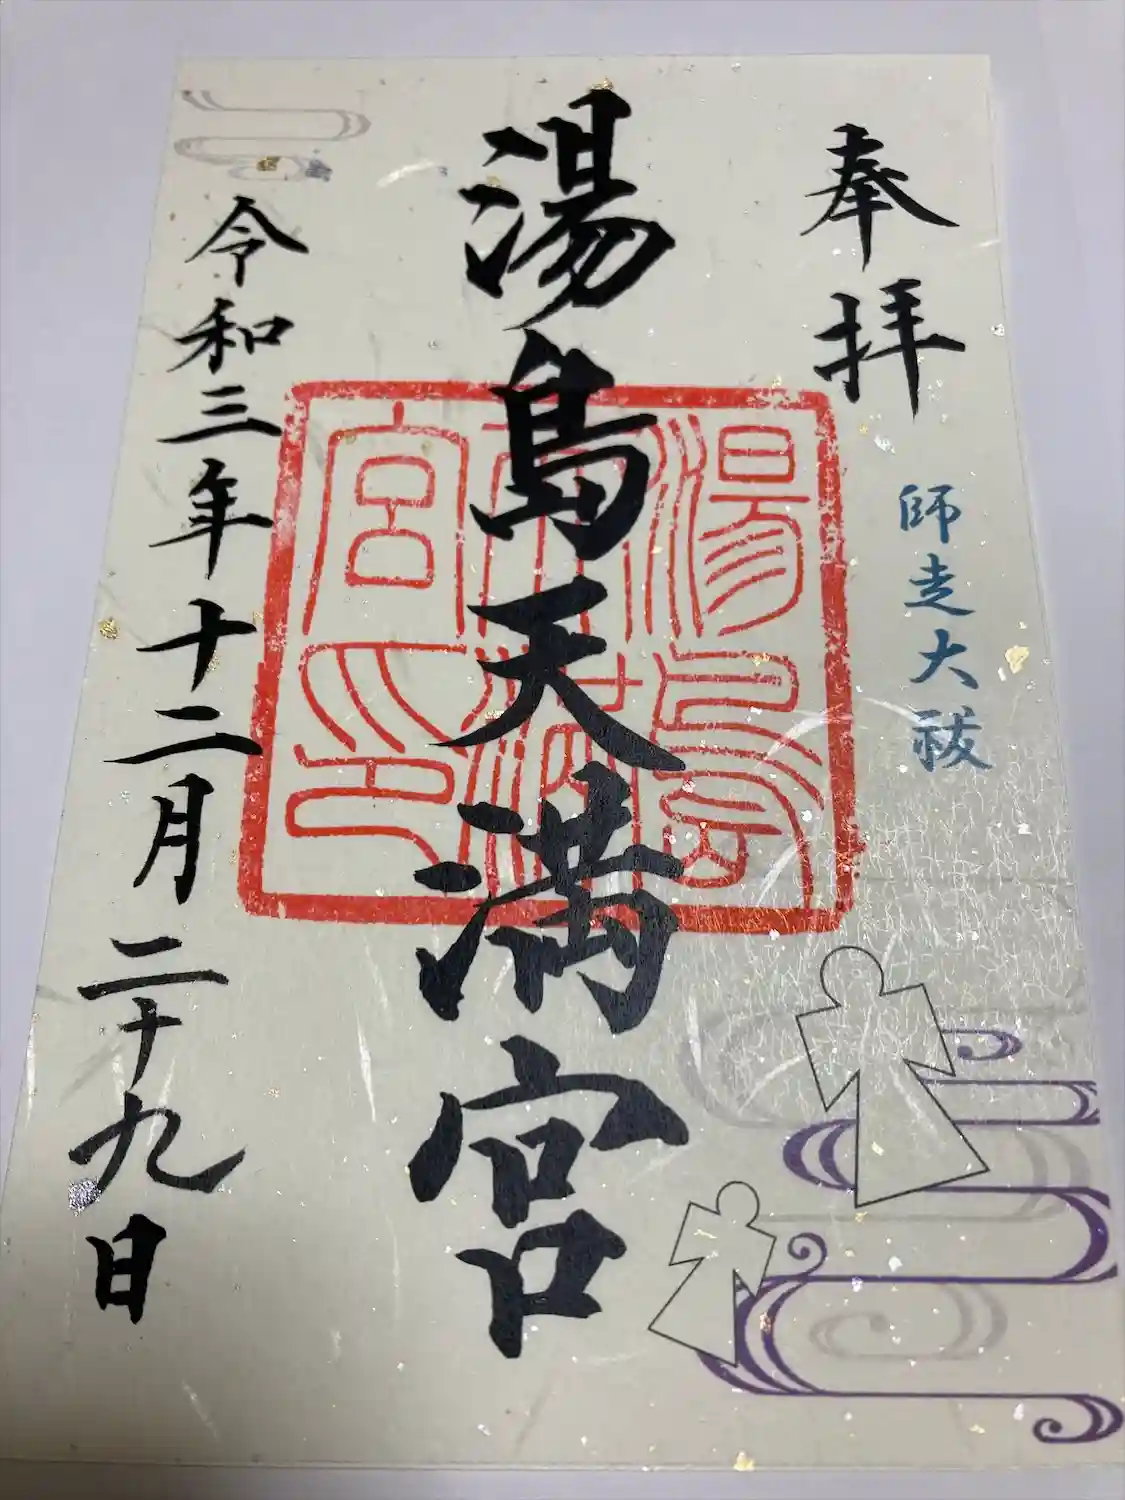 奉拝
師走大祓
湯島天満宮
湯島天満宮印
令和三年十二月二十九日